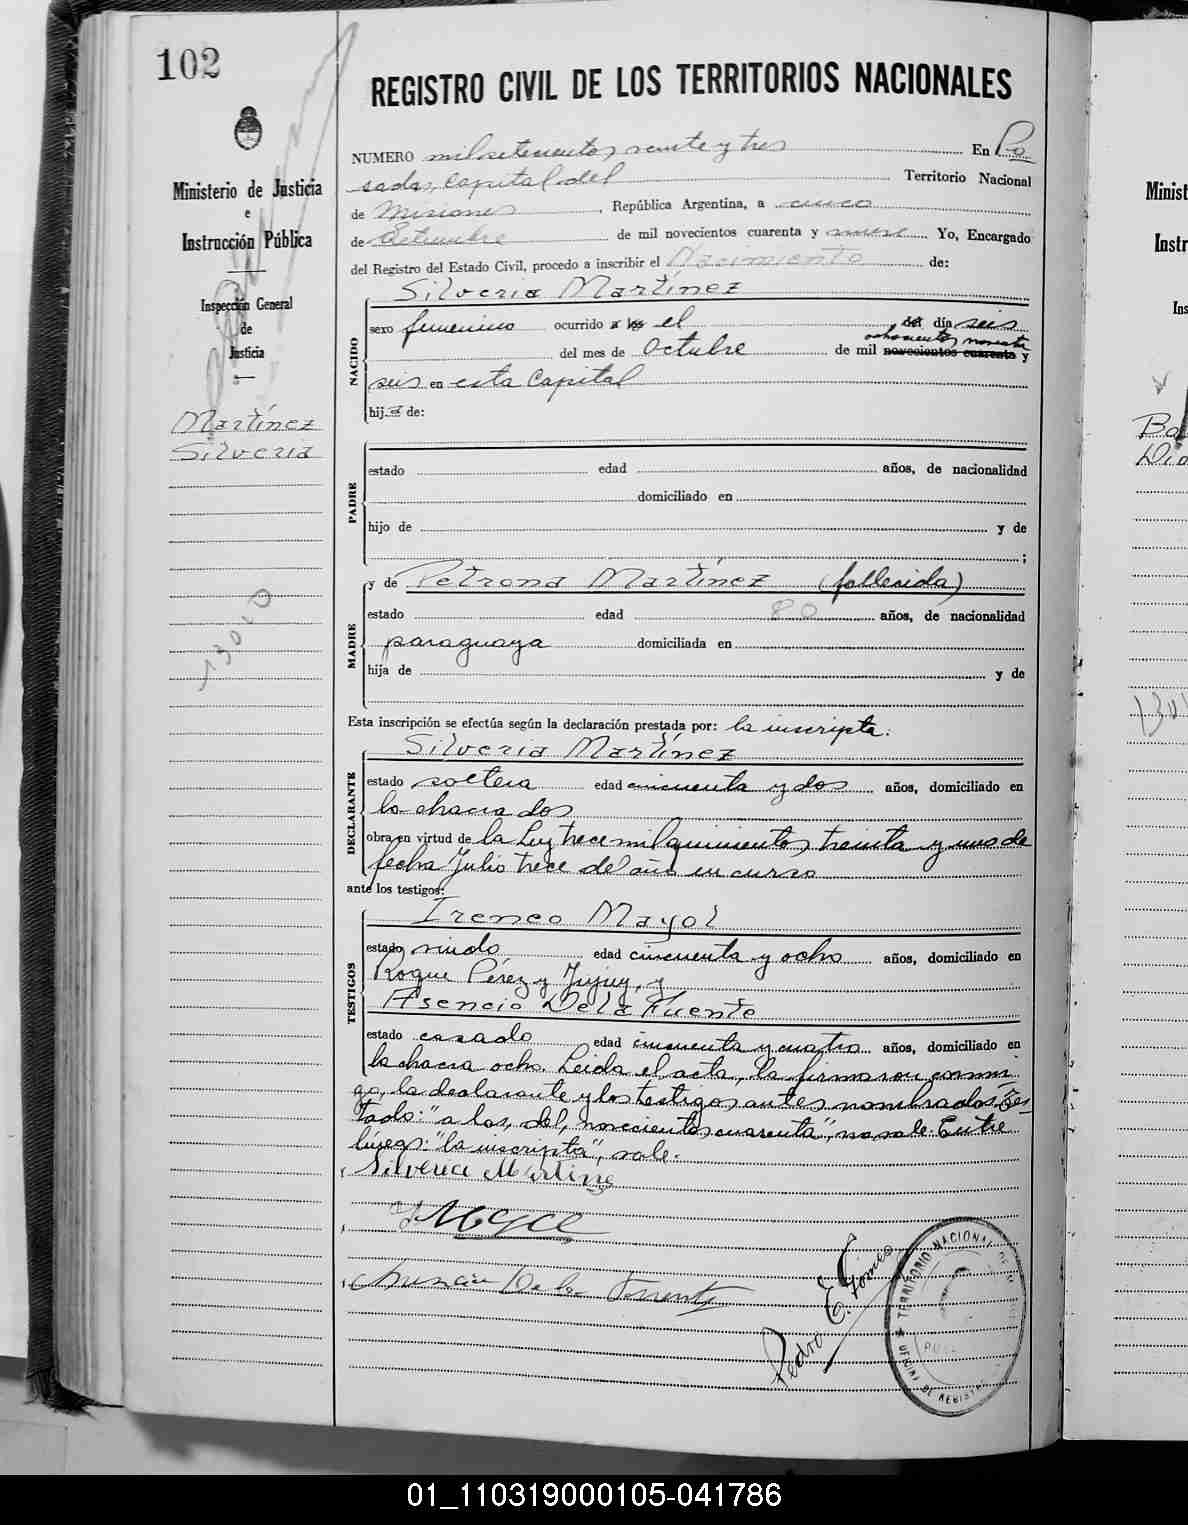 102
REGISTRO CIVIL DE LOS TERRITORIOS NACIONALES
Ministerio de Justicia
e
Instrucción Pública
Inspección General
de
Justicia
Martínez
Silveria
13040
NUMERO mil setecientos veinte y tres En Po
sadas, Capital del Territorio Nacional
de Misiones, República Argentina, a cinco
de Setiembre de mil novecientos cuarenta y nueve Yo, Encargado
del Registro del Estado Civil, procedo a inscribir el Nacimiento de:
NACIDO
Silveria Martínez
sexo femenino ocurrido a las el del día seis
ochocientos noventa
del mes de Octubre de mil novecientos cuarenta y
seis en esta Capital
hija de:
PADRE
estado edad años, de nacionalidad
domiciliado en
hijo de y de
;
MADRE
y de Petrona Martínez (fallecida)
estado edad 80 años, de nacionalidad
paraguaya domiciliada en
hija de y de
Esta inscripción se efectúa según la declaración prestada por: la inscripta:
DECLARANTE
Silveria Martínez
estado soltera edad cincuenta y dos años, domiciliado en
la chacra dos
obra en virtud de la Ley trece mil quinientos treinta y uno de
fecha Julio trece del año en curso
ante los testigos:
TESTIGOS
Ireneo Mayol
estado viudo edad cincuenta y ocho años, domiciliado en
Roque Pérez y Jujuy, y
Asencio De la Fuente
estado casado edad cincuenta y cuatro años, domiciliado en
la chacra ocho. Leida el acta, la firmaron conmi
go, la declarante y los testigos antes nombrados. Tes
tado: "a las, del, novecientos cuarenta", no vale. Entre
líneas: "la inscripta", vale.
Silveria Martinez
De la Fuente
Pedro E. Gomes
TERRITORIO NACIONAL DE
OFICINA DE REGISTRO
Minist
Instr
Ins
01_110319000105-041786